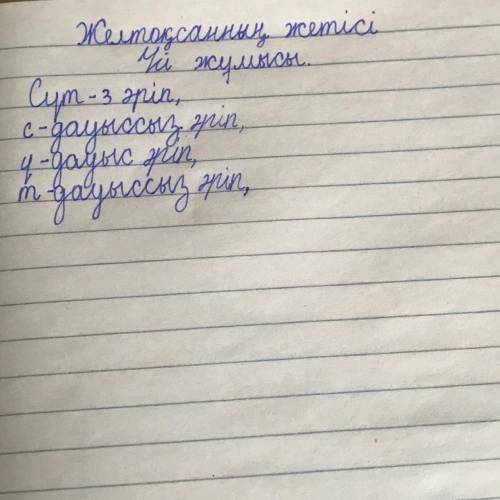 Желтоқсанның жетісі
Үй жұмысы.
Сүт-3 әріп,
с-дауыссыз әріп,
ү-дауыс әріп,
т-дауыссыз әріп,